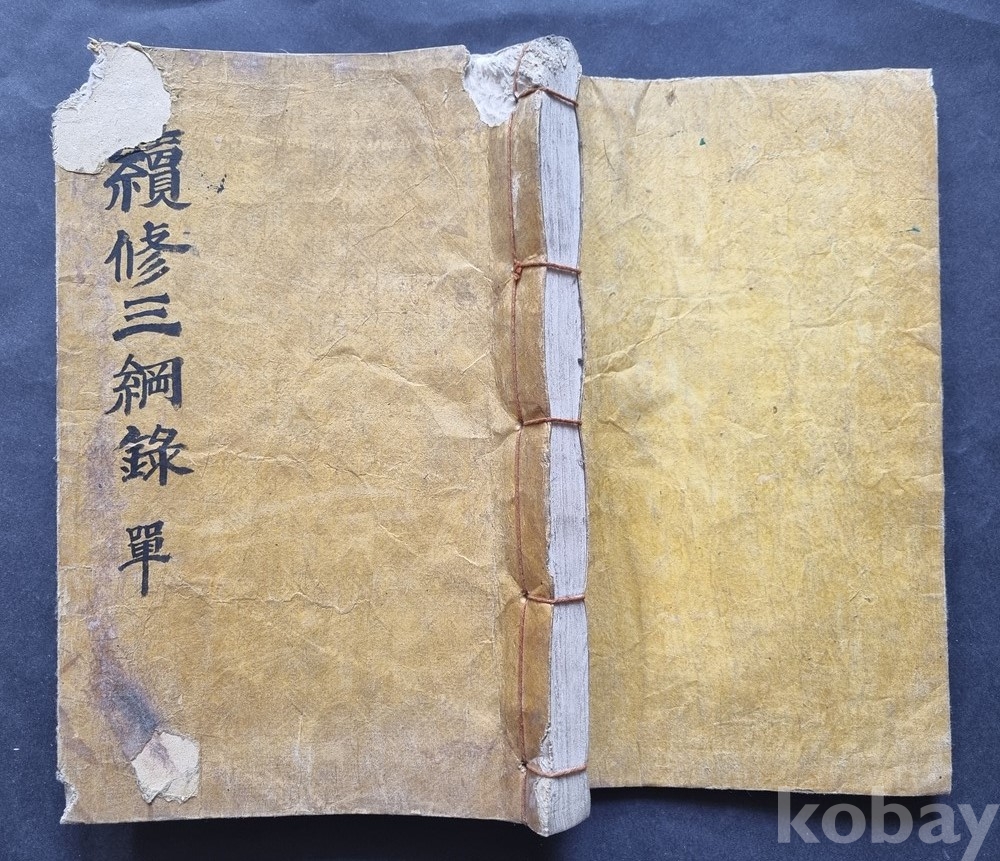 續修三綱錄 單
kobay